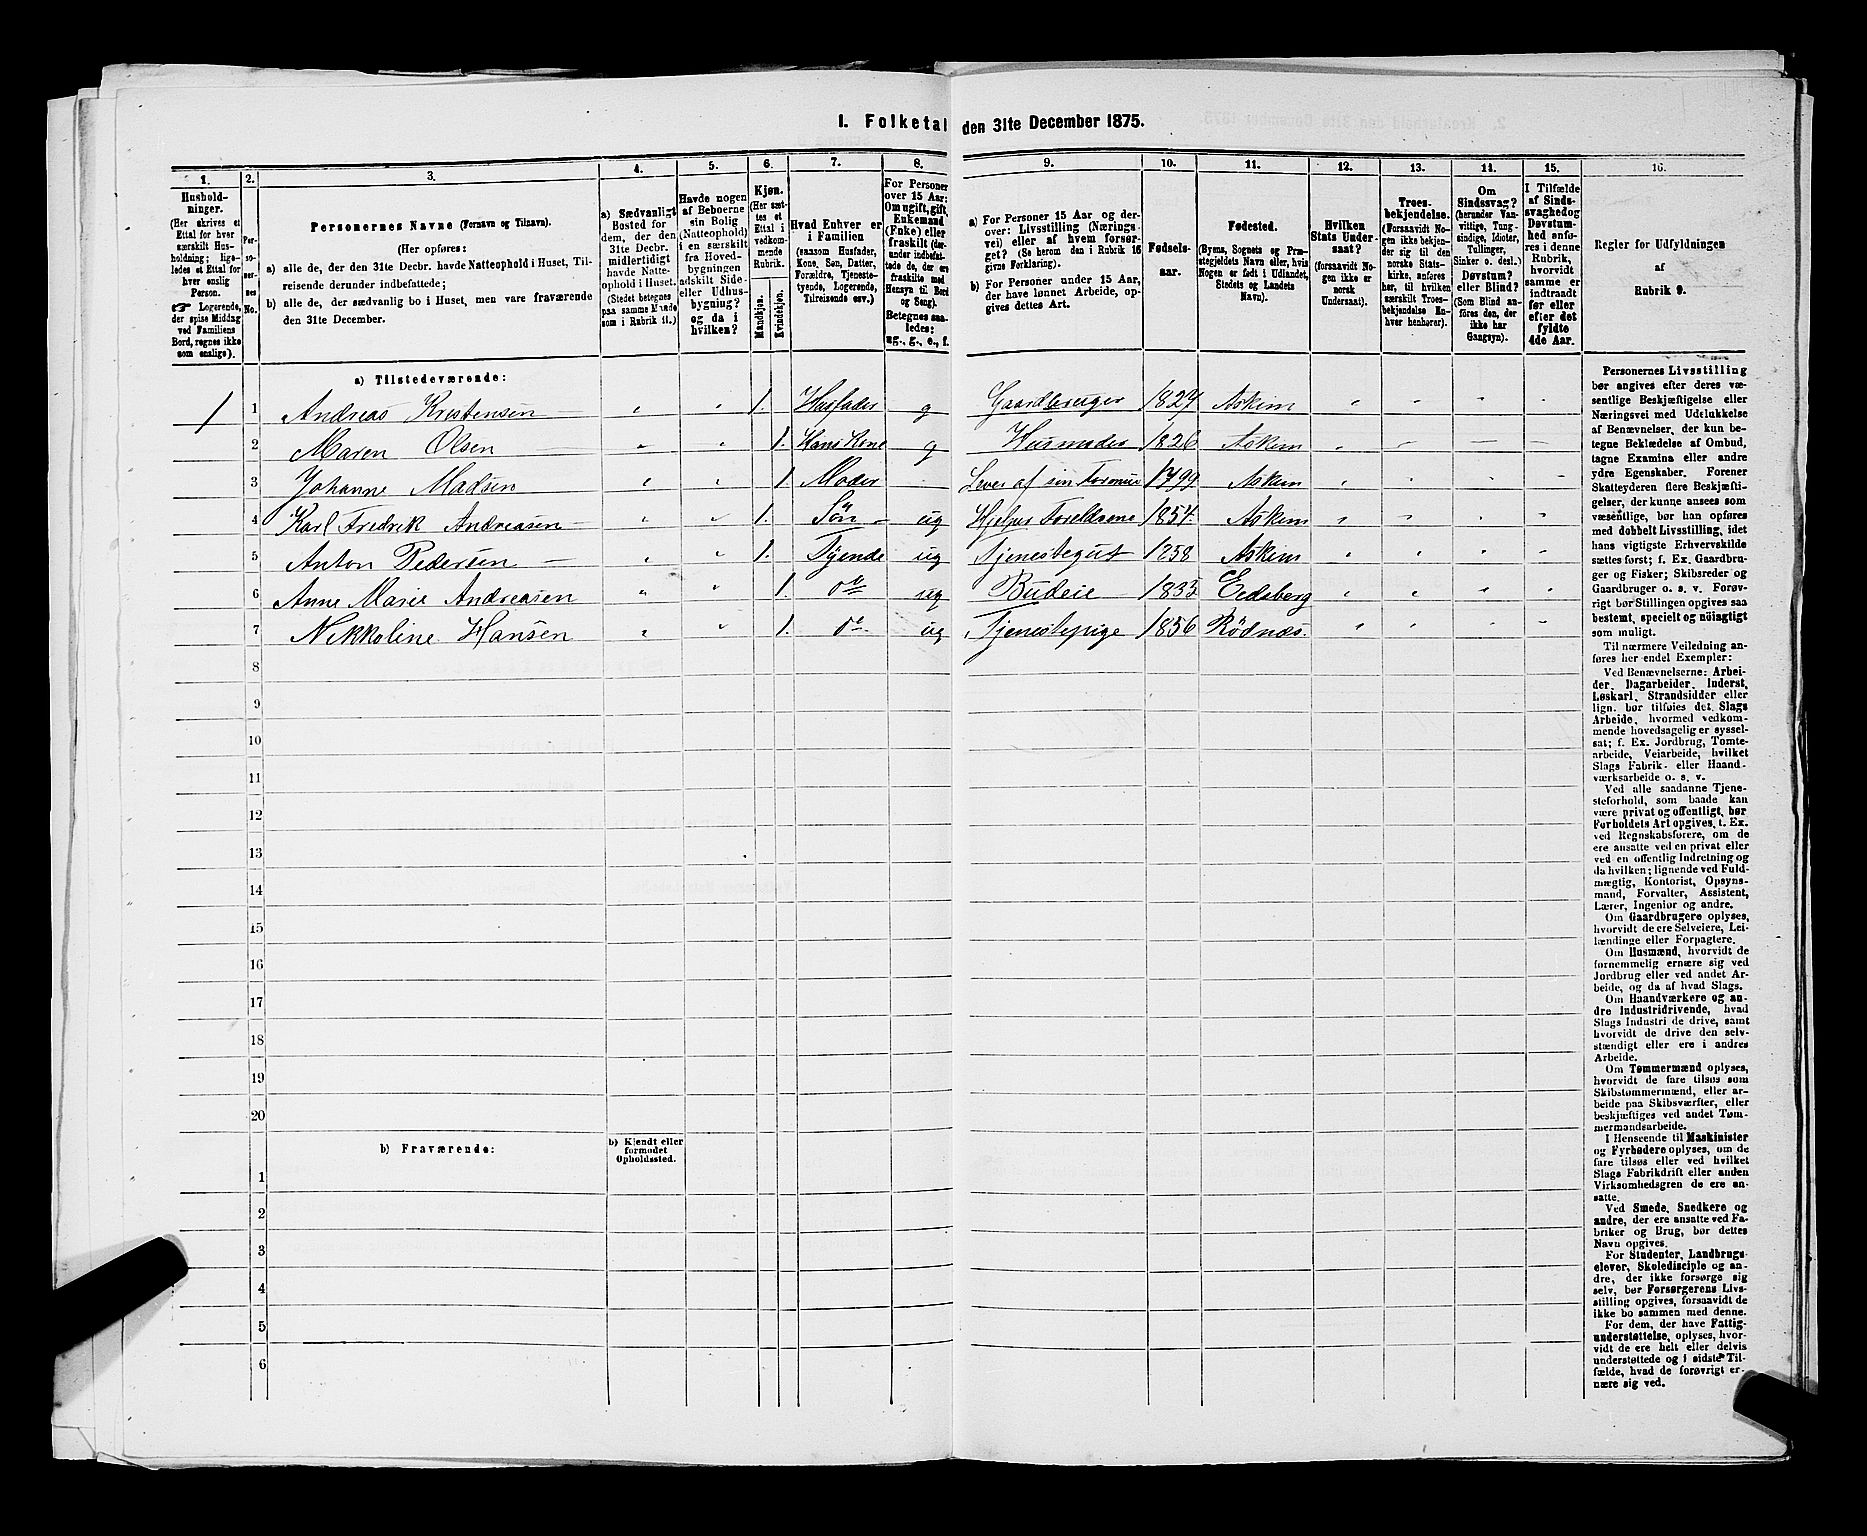 I. Folketal den 31te December 1875.
1. 2. 3. 4. 5. 6. 7. 8. 9. 10. 11. 12. 13. 14. 15. 16.
Hushold-
ninger.
(Her skrives et
Ettal for hver
særskilt Hus-
holdning; lige-
ledes et Ettal for
hver enslig
Person.
☞ Logerende,
der spise Middag
ved Familiens
Bord, regnes ikke
som enslige).
Per-
so-
ner-
nes
No.
Personernes Navne (Fornavn og Tilnavn).
(Her opføres:
a) alle de, der den 31te Decbr. havde Natteophold i Huset, Til-
reisende derunder indbefattede;
b) alle de, der sædvanlig bo i Huset, men vare fraværende
den 31te December.
a) Sædvanligt
Bosted for
dem, der den
31te Decbr.
midlertidigt
havde Natte-
ophold i Huset.
(Stedet betegnes
paa samme Maade
som i Rubrik 11.)
Havde nogen
af Beboerne
sin Bolig
(Natteophold)
i en særskilt
fra Hoved-
bygningen
adskilt Side-
eller Udhus-
bygning?
og da i
hvilken?
Kjøn.
(Her sæt-
tes et
Ettal i
vedkom-
mende
Rubrik.
Mandkjøn.
Kvindekjøn.
Hvad Enhver er
i Familien
(saasom Husfader,
Kone, Søn, Datter,
Forældre, Tjeneste-
tyende, Logerende,
Tilreisende osv.)
For Personer
over 15 Aar:
Om ugift, gift,
Enkemand
(Enke) eller
fraskilt (der-
under indbefat-
tede de, der ere
fraskilte med
Hensyn til Bord
og Seng).
Betegnes saa-
ledes:
ug., g., e., f.
a) For Personer 15 Aar og der-
over: Livsstilling (Nærings-
vei) eller af hvem forsør-
get? (Se herom den i Rubrik 16
givne Forklaring).
b) For Personer under 15 Aar,
der have lønnet Arbeide, op-
gives dettes Art.
Fødsels-
aar.
Fødested.
(Byens, Sognets og Præ-
stegjeldets Navn eller, hvis
Nogen er født i Udlandet,
Stedets og Landets
Navn).
Hvilken
Stats Under-
saat?
(forsaavidt No-
gen ikke er
norsk
Undersaat).
Troes-
bekjendelse.
(Forsaavidt No-
gen ikke bekjen-
der sig til den
norske Stats-
kirke, anføres
her, til hvilken
særskilt Troes-
bekjendelse En-
hver henhører).
Om
Sindssvag?
(herunder Van-
vittige, Tung-
sindige, Idioter,
Tullinger,
Sinker o. desl.)
Døvstum?
eller Blind?
(Som Blind an-
føres den, der
ikke har
Gangsyn).
I Tilfælde
af Sinds-
svaghed og
Døvstum-
hed anfø-
res i denne
Rubrik,
hvorvidt
samme er
indtraadt
før eller
efter det
fyldte
4de Aar.
Regler for Udfyldningen
af
Rubrik 9.
a) Tilstedeværende:
1 1 Andreas Kristensen — " " 1. Husfader g Gaardbruger 1827 Askim " " " "
2 Maren Olsen — " " 1. Hans Kone g Husmoder 1826 Askim
3 Johanne Madsen " " 1. Moder Lever af sin Formue 1799 Askim
4 Karl Fredrik Andreasen — " " 1. Søn ug Hjelper Forældrene 1854. Askim
5 Anton Pedersen — " " 1. Tyende ug Tjenestegut 1858 Askim
6 Anne Marie Andreasen " " 1. do ug Budeie 1833 Eedsberg
7 Nikkoline Hansen " " 1. do ug Tjenestepige 1856 Rödnæs.
8
9
10
11
12
13
14
15
16
17
18
19
20
b) Fraværende:
b) Kjendt eller
formodet
Opholdssted.
1
2
3
4
5
6
Personernes Livsstilling
bør angives efter deres væ-
sentlige Beskjæftigelse eller
Næringsvei med Udelukkelse
af Benævnelser, der kun be-
tegne Beklædelse af Ombud,
tagne Examina eller andre
ydre Egenskaber. Forener
Skatteyderen flere Beskjæfti-
gelser, der kunne ansees som
væsentlige, bør han opføres
med dobbelt Livsstilling, idet
hans vigtigste Erhvervskilde
sættes først; f. Ex. Gaardbru-
ger og Fisker; Skibsreder og
Gaardbruger o. s. v. Forøv-
rigt bør Stillingen opgives saa
bestemt, specielt og nøiagtigt
som muligt.
Til nærmere Veiledning an-
føres her endel Exempler:
Ved Benævnelserne: Arbei-
der, Dagarbeider, Inderst,
Løskarl, Strandsidder eller
lign. bør tilføies det Slags
Arbeide, hvormed vedkom-
mende hovedsagelig er syssel-
sat; f. Ex. Jordbrug, Tomte-
arbeide, Veiarbeide, hvilket
Slags Fabrik- eller Haand-
værksarbeide o. s. v.
Ved alle saadanne Tjene-
steforhold, som baade kan
være privat og offentligt, bør
Forholdets Art opgives, t. Ex.
ved Regnskabsførere, om de
ere ansatte ved en privat eller
ved en offentlig Indretning og
da hvilken; lignende ved Fuld-
mægtig, Kontorist, Opsyns-
mand, Forvalter, Assistent,
Lærer, Ingeniør og andre.
Om Gaardbrugere oplyses,
hvorvidt de ere Selveiere, Lei-
lændinge eller Forpagtere.
Om Husmænd, hvorvidt de
fornemmelig ernære sig ved
Jordbrug eller ved andet Ar-
beide, og da af hvad Slags.
Om Haandværkere og an-
dre Industridrivende, hvad
Slags Industri de drive, samt
hvorvidt de drive den selv-
stændigt eller ere i andres
Arbeide.
Om Tømmermænd oplyses,
hvorvidt de fare tilsøs som
Skibstømmermænd, eller ar-
beide paa Skibsværfter, eller
beskjæftiges ved andet Tøm-
mermandsarbeide.
I Henseende til Maskinister
og Fyrbødere oplyses, om de
fare tilsøs eller ved hvilket
Slags Fabrikdrift eller anden
Virksomhedsgren de ere an-
satte.
Ved Smede, Snedkere og
andre, der ere ansatte ved Fa-
briker og Brug, bør dettes
Navn opgives.
For Studenter, Landbrugs-
elever, Skoledisciple og an-
dre, der ikke forsørge sig
selv, bør Forsørgerens Livs-
stilling opgives, forsaavidt de
ikke bo sammen med denne.
For dem, der have Fattig-
understøttelse, oplyses, hvor-
vidt de ere helt eller delvis
understøttede og i sidste Til-
fælde, hvad de forøvrigt er-
nære sig ved.